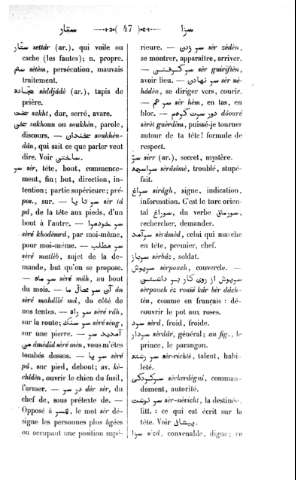 ستار — 47 — سزا
ستار settâr (ar.), qui voile ou
cache (les fautes); n. propre.
ستم sitèm, persécution, mauvais
traitement.
سجاده sèddjâdè (ar.), tapis de
prière.
سخت sakht, dur, serré, avare.
سخن sukhoun ou soukhèn, parole,
discours. —
dân, qui sait ce que parler veut
dire. Voir ساختن.
سر sir, tête, bout, commence-
ment, fin; but, direction, in-
tention; partie supérieure; pré-
pou, sur. —
pâ, de la tête aux pieds, d'un
bout à l'autre. —
sèrè khodmoura, par moi-même,
pour moi-même. — سر مطلب
sèrè matlèb, sujet de la de-
mande, but qu'on se propose.
— سر ماه sèrè mâh, au bout
du mois. —
sèrè mahallè mâ, du côté de
notre — سر راه sèrè râh,
sur la route; سر سنگ sèrè sèng,
sur une pierre. —
vous m'êtes
tombés dessus. — سر پا sèrè
pâ, sur pied, debout; as.
chîdèn, ouvrir le chien du fusil,
l'armer. — سر در dèr sèr, du
chef de, sous prétexte de. —
Opposé à le mot sèr dé-
signe les personnes plus âgées
ou occupant une position supé-
rieure. — سر زدن sèr zèdèn,
se montrer, apparaître, arriver.
— سر گرفتن sèr guirifièn,
avoir lieu. — سر نهادن sèr nè-
hâdèn, se diriger vers, courir.
— سر هم sèr hèm, en tas, en
bloc. —
sèrèt guèrdèm, puissé-je tourner
autour de ta tête! formule de
respect.
سر sirr (ar.), secret, mystère.
سراسیمه sèrâsimè, troublé, stupé-
fait.
سراغ sirâgh, signe, indication,
information. C'est le turc orien-
tal صوراغ, du verbe صورماق,
rechercher, demander.
سرآمد sèrâmèd, celui qui marche
en tête, premier, chef.
سرباز sèrbâz, soldat.
سرپوش sèrpouch, couvercle. —
سرپوش از روی کار بر داشتن
sèrpouch èz rouïè kâr bèr dâch-
tèn, comme en français : dé-
couvrir le pot aux roses.
سرد sèrd, froid, froide.
سردار sèrdâr, général; au fig., le
prince, le parangon.
سررشته sèr-richtè, talent, habi-
leté.
سرکردگی sèrkèrdègui, comman-
dement, autorité.
سرنوشت sèr-nèvicht, la destinée,
litt. : ce qui est écrit sur la
tête. Voir پیشانی.
سزا sizâ, convenable, digne; ce